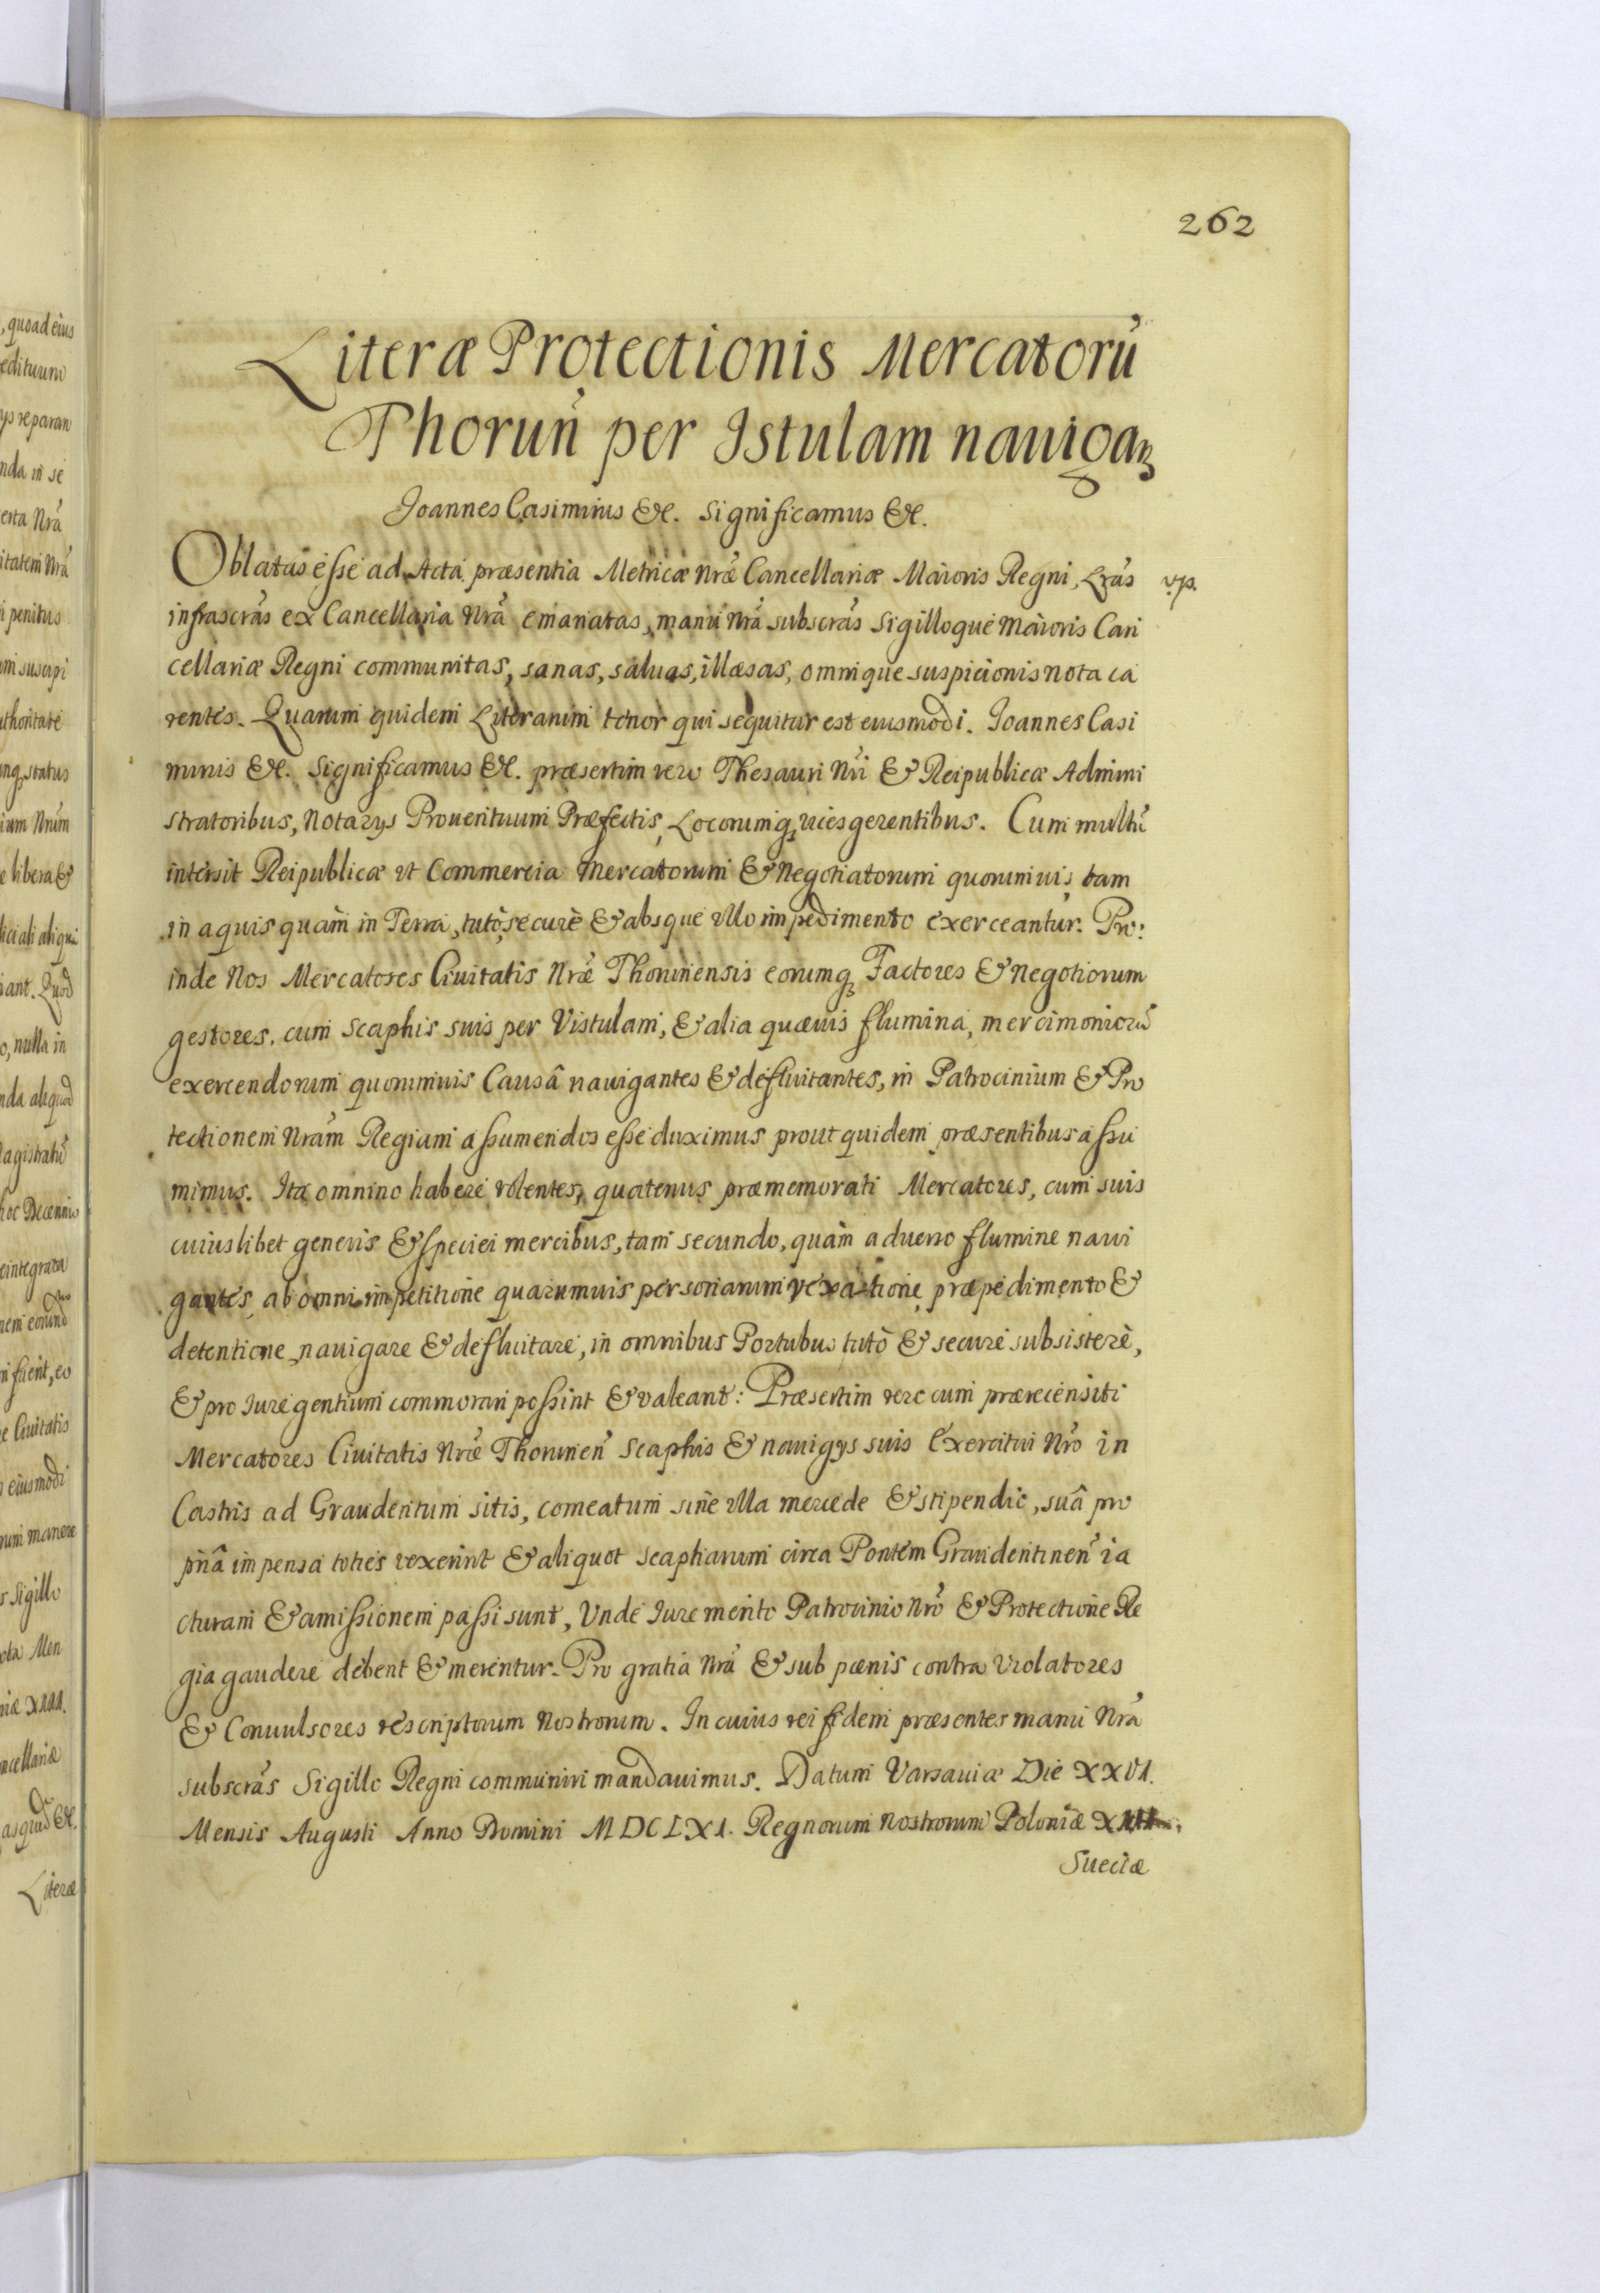 262
Literæ Protectionis Mercatorú
Thoruń per Istulam nauigaꝫ
Joannes Casimirus &c. Significamus &c.
Oblatas esse ad Acta præsentia Metricæ nræ Cancellariæ Maioris Regni, Lras
infrascras ex Cancellaria Nra emanatas, manu Nra subscras Sigilloque Maioris Can
cellariæ Regni communitas, sanas, saluas, illæsas, omnique suspicionis nota ca
rentes. Quarum quidem Literarum tenor qui sequitur est eiusmodi. Joannes Casi
mirus &c. Significamus &c. præsertim vero Thesauri Nri & Reipublicæ Admini
stratoribus, Notarys Prouentuum Præfectis, Locorumqꝫ vicesgerentibus. Cum multú
intersit Reipublicæ vt Commercia Mercatorum & Negotiatorum quorumuis tam
in aquis quàm in Terra, tutò, securè & absque vllo impedimento exerceantur. Pro:
inde Nos Mercatores Ciuitatis Nræ Thoruñensis eorumqꝫ Factores & Negotiorum
gestores, cum scaphis suis per Vistulam, & alia quæuis flumina, mercimoniorú
exercendorum quorumuis Causâ nauigantes & defluitantes, in Patrocinium & Pro
tectionem Nram Regiam assumendos esse duximus prout quidem præsentibus assu
mimus. Ita omnino habere volentes, quatenus præmemorati Mercatores, cum suis
cuiuslibet generis & speciei mercibus, tam secundo, quàm aduerso flumine naui
gantes, ab omni impetitione quarumuis personarum vexatione, præpedimento &
detentione, nauigare & defluitare, in omnibus Portubus tutò & securè subsistere,
& pro Jure gentium commorari possint & valeant: Præsertim vero cum præcensiti
Mercatores Ciuitatis Nræ Thoruñen scaphis & nauigys suis Exercitui Nro in
Castris ad Graudentum sitis, comeatum sine vlla mercede & stipendio, suâ pro
priâ impensa toties vexerint & aliquot scapharum circa Pontem Graudentinen ia
cturam & amissionem passi sunt, Vnde Jure merito Patrocinio Nro & Protectione Re
gia gaudere debent & merentur. Pro gratia Nra & sub pœnis contra Violatores
& Conuulsores rescriptorum Nostrorum. In cuius rei fidem præsentes manu Nra
subscras Sigillo Regni communiri mandauimus. Datum Varsauiæ Die XXVI.
Mensis Augusti Anno Domini MDCLXI. Regnorum Nostrorum Poloniæ XIII.
Sueciæ